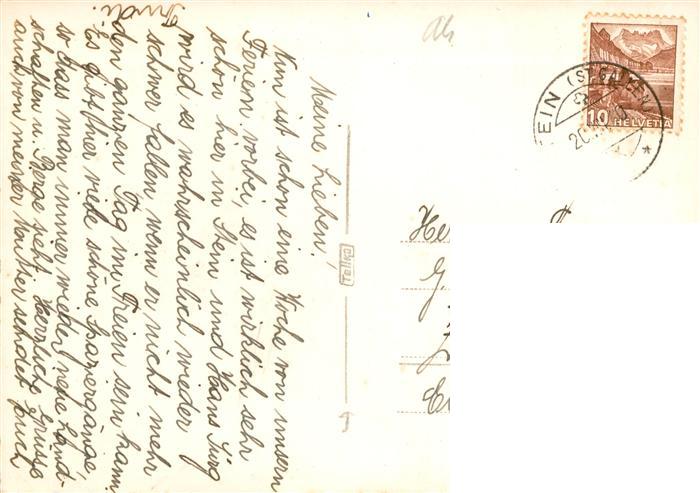 Meine Lieben,
Nun ist schon eine Woche von unsern
Ferien vorbei, es ist wirklich sehr
schön hier in Stein und Hans Jürg
wird es wahrscheinlich wieder
schwer fallen, wenn er nicht mehr
den ganzen Tag im Freien sein kann.
Es gibt hier viele schöne Spaziergänge,
so dass man immer wieder neue Land-
schaften u. Berge sieht. Herzliche Grüsse
auch von meiner Mutter sendet Euch
Trudi.
Telko
STEIN (ST. GALLEN)
10 HELVETIA
He
G.